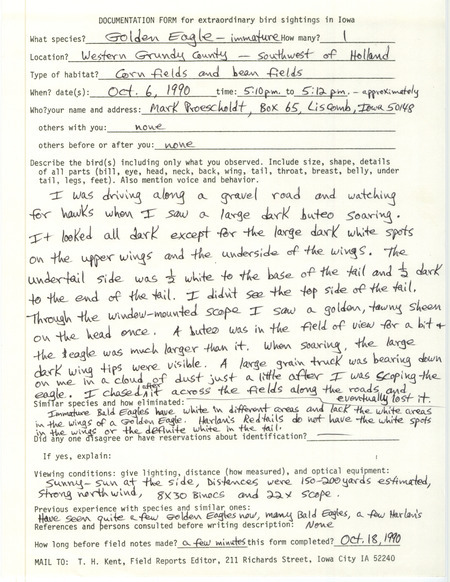 DOCUMENTATION FORM for extraordinary bird sightings in Iowa
What species? Golden Eagle - immature How many? 1
Location? Western Grundy County - Southwest of Holland
Type of habitat? Corn fields and bean fields
When? date(s): Oct. 6, 1990 time: 5:10pm. to 5:12 p.m. - approximately
Who?your name and address: Mark Proescholdt, Box 65, Liscomb, Iowa 50148
others with you: none
others before or after you: none
Describe the bird(s) including only what you observed. Include size, shape, details
of all parts (bill, eye, head, neck, back, wing, tail, throat, breast, belly, under
tail, legs, feet). Also mention voice and behavior.
I was driving along a gravel road and watching
for hawks when I saw a large dark buteo soaring.
It looked all dark except for the large dark white spots
on the upper wings and the underside of the wings. The
undertail side was ½ white to the base of the tail and ½ dark
to the end of the tail. I didn't see the top side of the tail.
Through the window-mounted scope I saw a golden, tawny sheen
on the head once. A buteo was in the field of view for a bit +
the eagle was much larger than it. When soaring, the large
dark wing tips were visible. A large grain truck was bearing down
on me in a cloud of dust just a little after I was scoping the
eagle. I chased after it across the fields along the roads, and
eventually lost it.
Similar species and how eliminated:
Immature Bald Eagles have white in different areas and lack the white areas
in the wings of a Golden Eagle. Harlan's Redtails do not have the white spots
in the wings or the definite white in the tail.
Did any one disagree or have reservations about identification?
If yes, explain:
Viewing conditions: give lighting, distance (how measured), and optical equipment:
Sunny - sun at the side, Distances were 150-200 yards estimated,
strong north wind, 8X30 Binocs and 22x scope.
Previous experience with species and similar ones:
Have seen quite a few Golden Eagles now, many Bald Eagles, a few Harlan's
References and persons consulted before writing description: None
How long before field notes made? a few minutes this form completed? Oct. 18, 1990
MAIL TO: T. H. Kent, Field Reports Editor, 211 Richards Street, Iowa City IA 52240